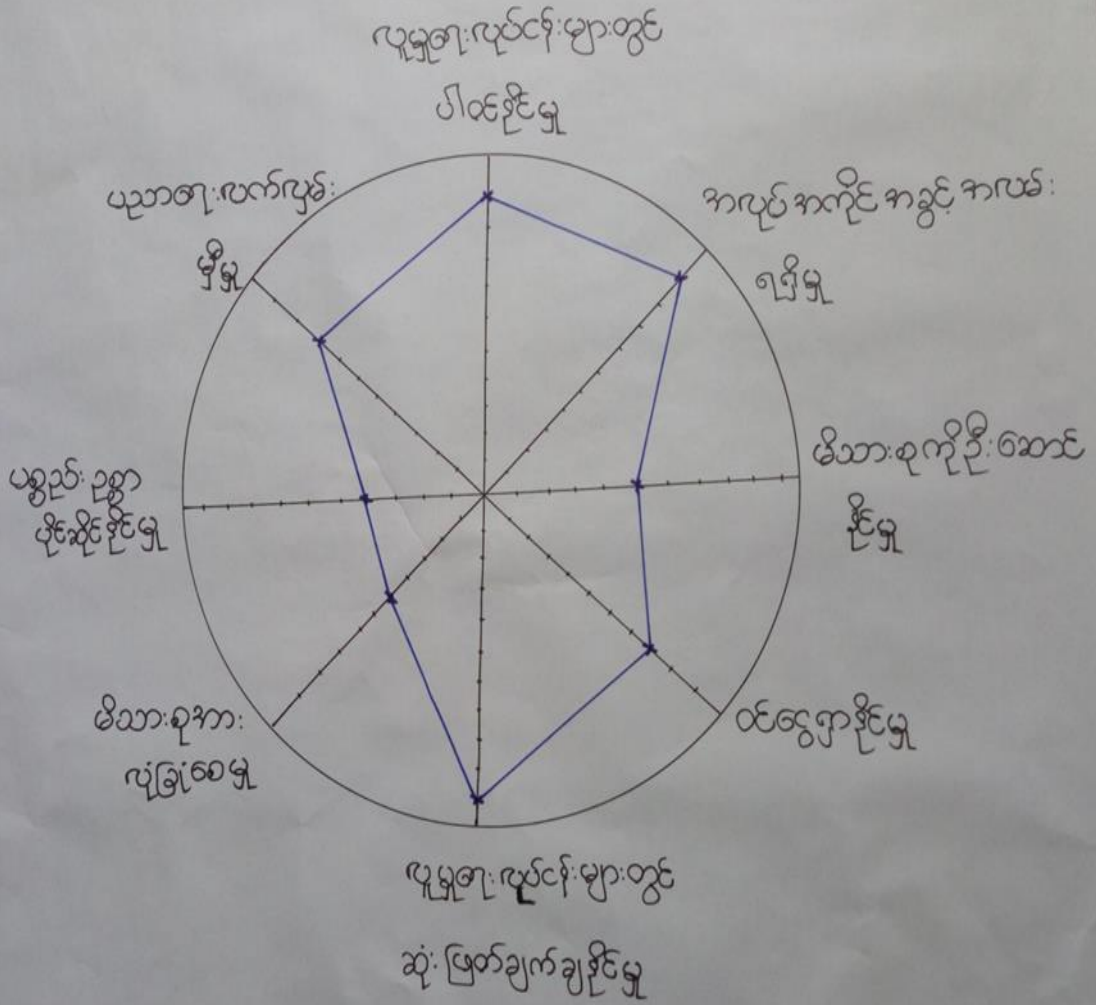 လူမှုရေးလုပ်ငန်းများတွင်
ပါဝင်နိုင်မှု
အလုပ်အကိုင်အခွင့်အလမ်း
ရရှိမှု
မိသားစုကိုဦးဆောင်
နိုင်မှု
ဝင်ငွေရှာနိုင်မှု
လူမှုရေးလုပ်ငန်းများတွင်
ဆုံးဖြတ်ချက်ချနိုင်မှု
မိသားစုအား
လုံခြုံစေမှု
ပစ္စည်းဥစ္စာ
ပိုင်ဆိုင်နိုင်မှု
ပညာရေးလက်လှမ်း
မှီမှု